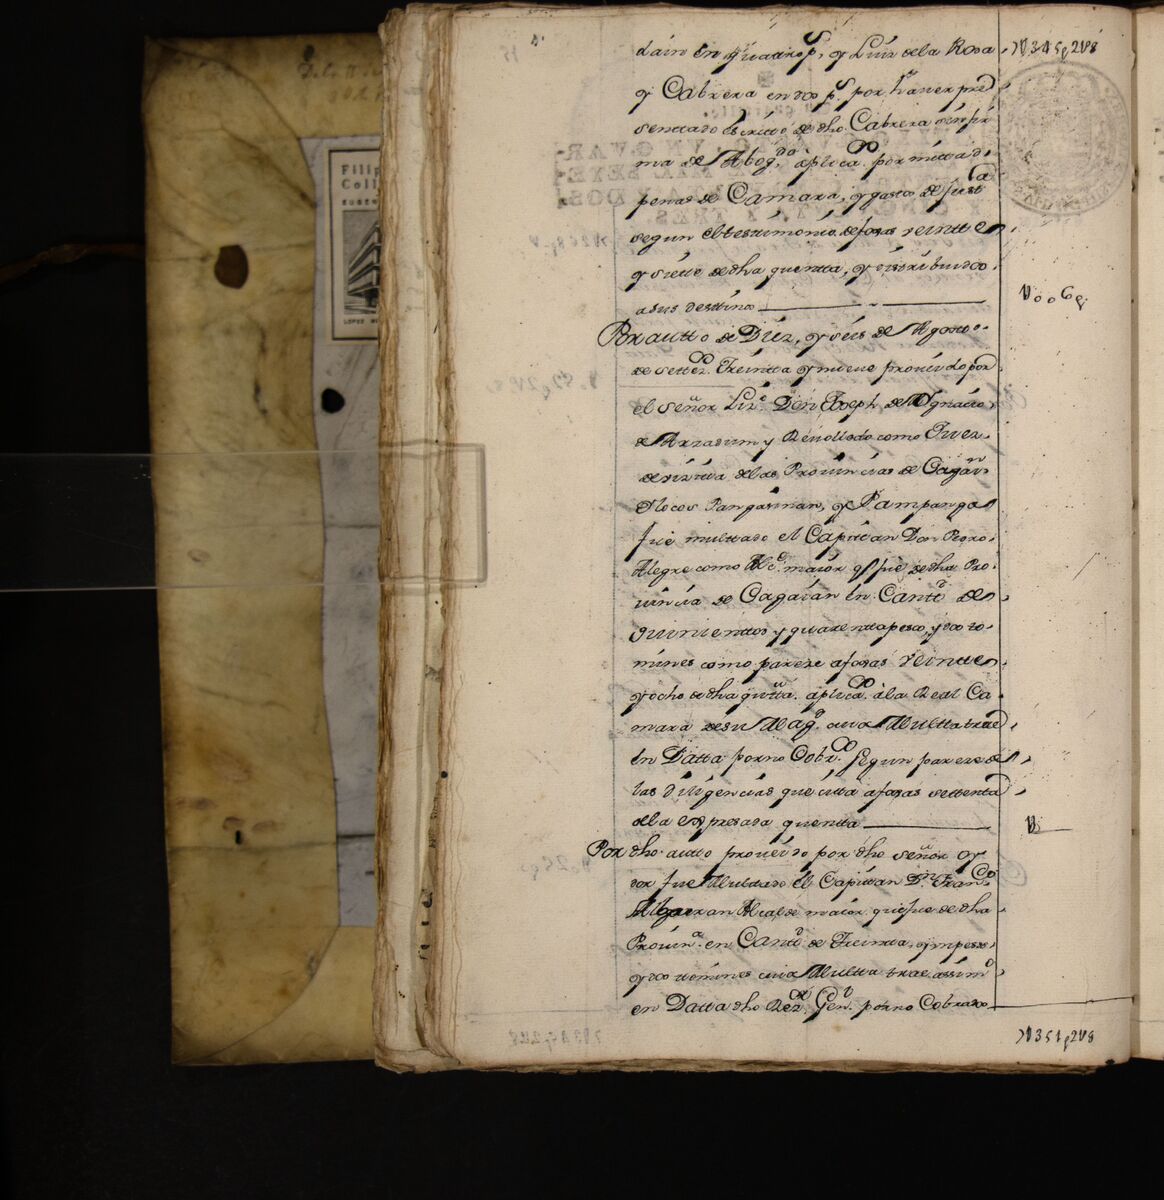 lain en quatro p.s y Luis de la Rosa
y Cabrera en dos p.s por haver pre
sentado escritto de dho Cabrera sin fir
ma de Abog.do aplica.do por mittad
penas de Camara, y gastos de Justa
segun el testimonio de foxas veintte
y siette de dha quentta, y distribuidos
a sus desttinos
Por autto de Diez, y seis de Agosto
de settez.tos Treintta y nueve proveido por
el Señor Liz.do Don Joseph de Ygnacio
de Arzadum y Revolledo como Juez
de vizitta de las Provincias de Cagaian
Ylocos Pangasinan, y Pampanga
fue multtado el Capittan Don Pedro
Alegre como Alc.e maior q fue de dha Pro
vincia de Cagaian en Cantt.d de
quinienttos y quarentta pesos, y dos to
mines como pareze a foxas veintte
y ocho de dha quẽtta. aplica.do â la Real Ca
mara de su Mag.d cuia Multta trae
en Datta por no Cobr.do segun pareze de
las diligencias que citta a foxas settentta
de la expresada quentta
Por dho autto proveido por dho señor Oy
dor fue Multtado el Capittan D.n Fran.co
Albarran Alcalde maior que fue de dha
Provin.a en Cantt.d de Treintta, y un pesos
y dos tomines cuia Multta trae assim.o
en Datta dho Rez.or Gen.l por no Cobrado
V006p
V345p2V8
V351p2V8